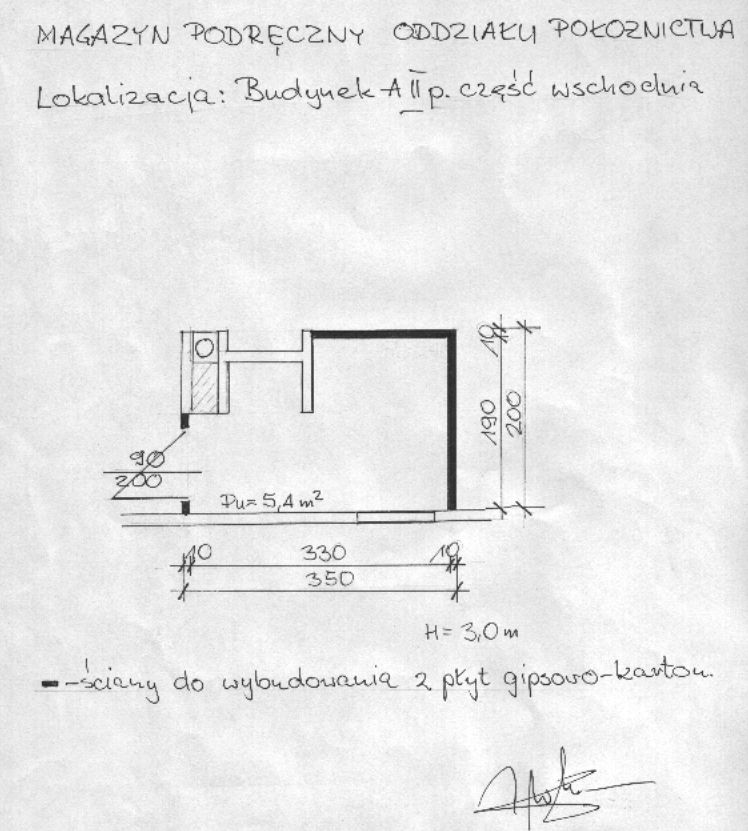 MAGAZYN PODRĘCZNY ODDZIAŁU POŁOŻNICTWA
Lokalizacja: Budynek A II p. część wschodnia
10
190
200
90
200
Pu= 5,4 m²
10 330 10
350
H= 3,0 m
-ściany do wybudowania z płyt gipsowo-karton.